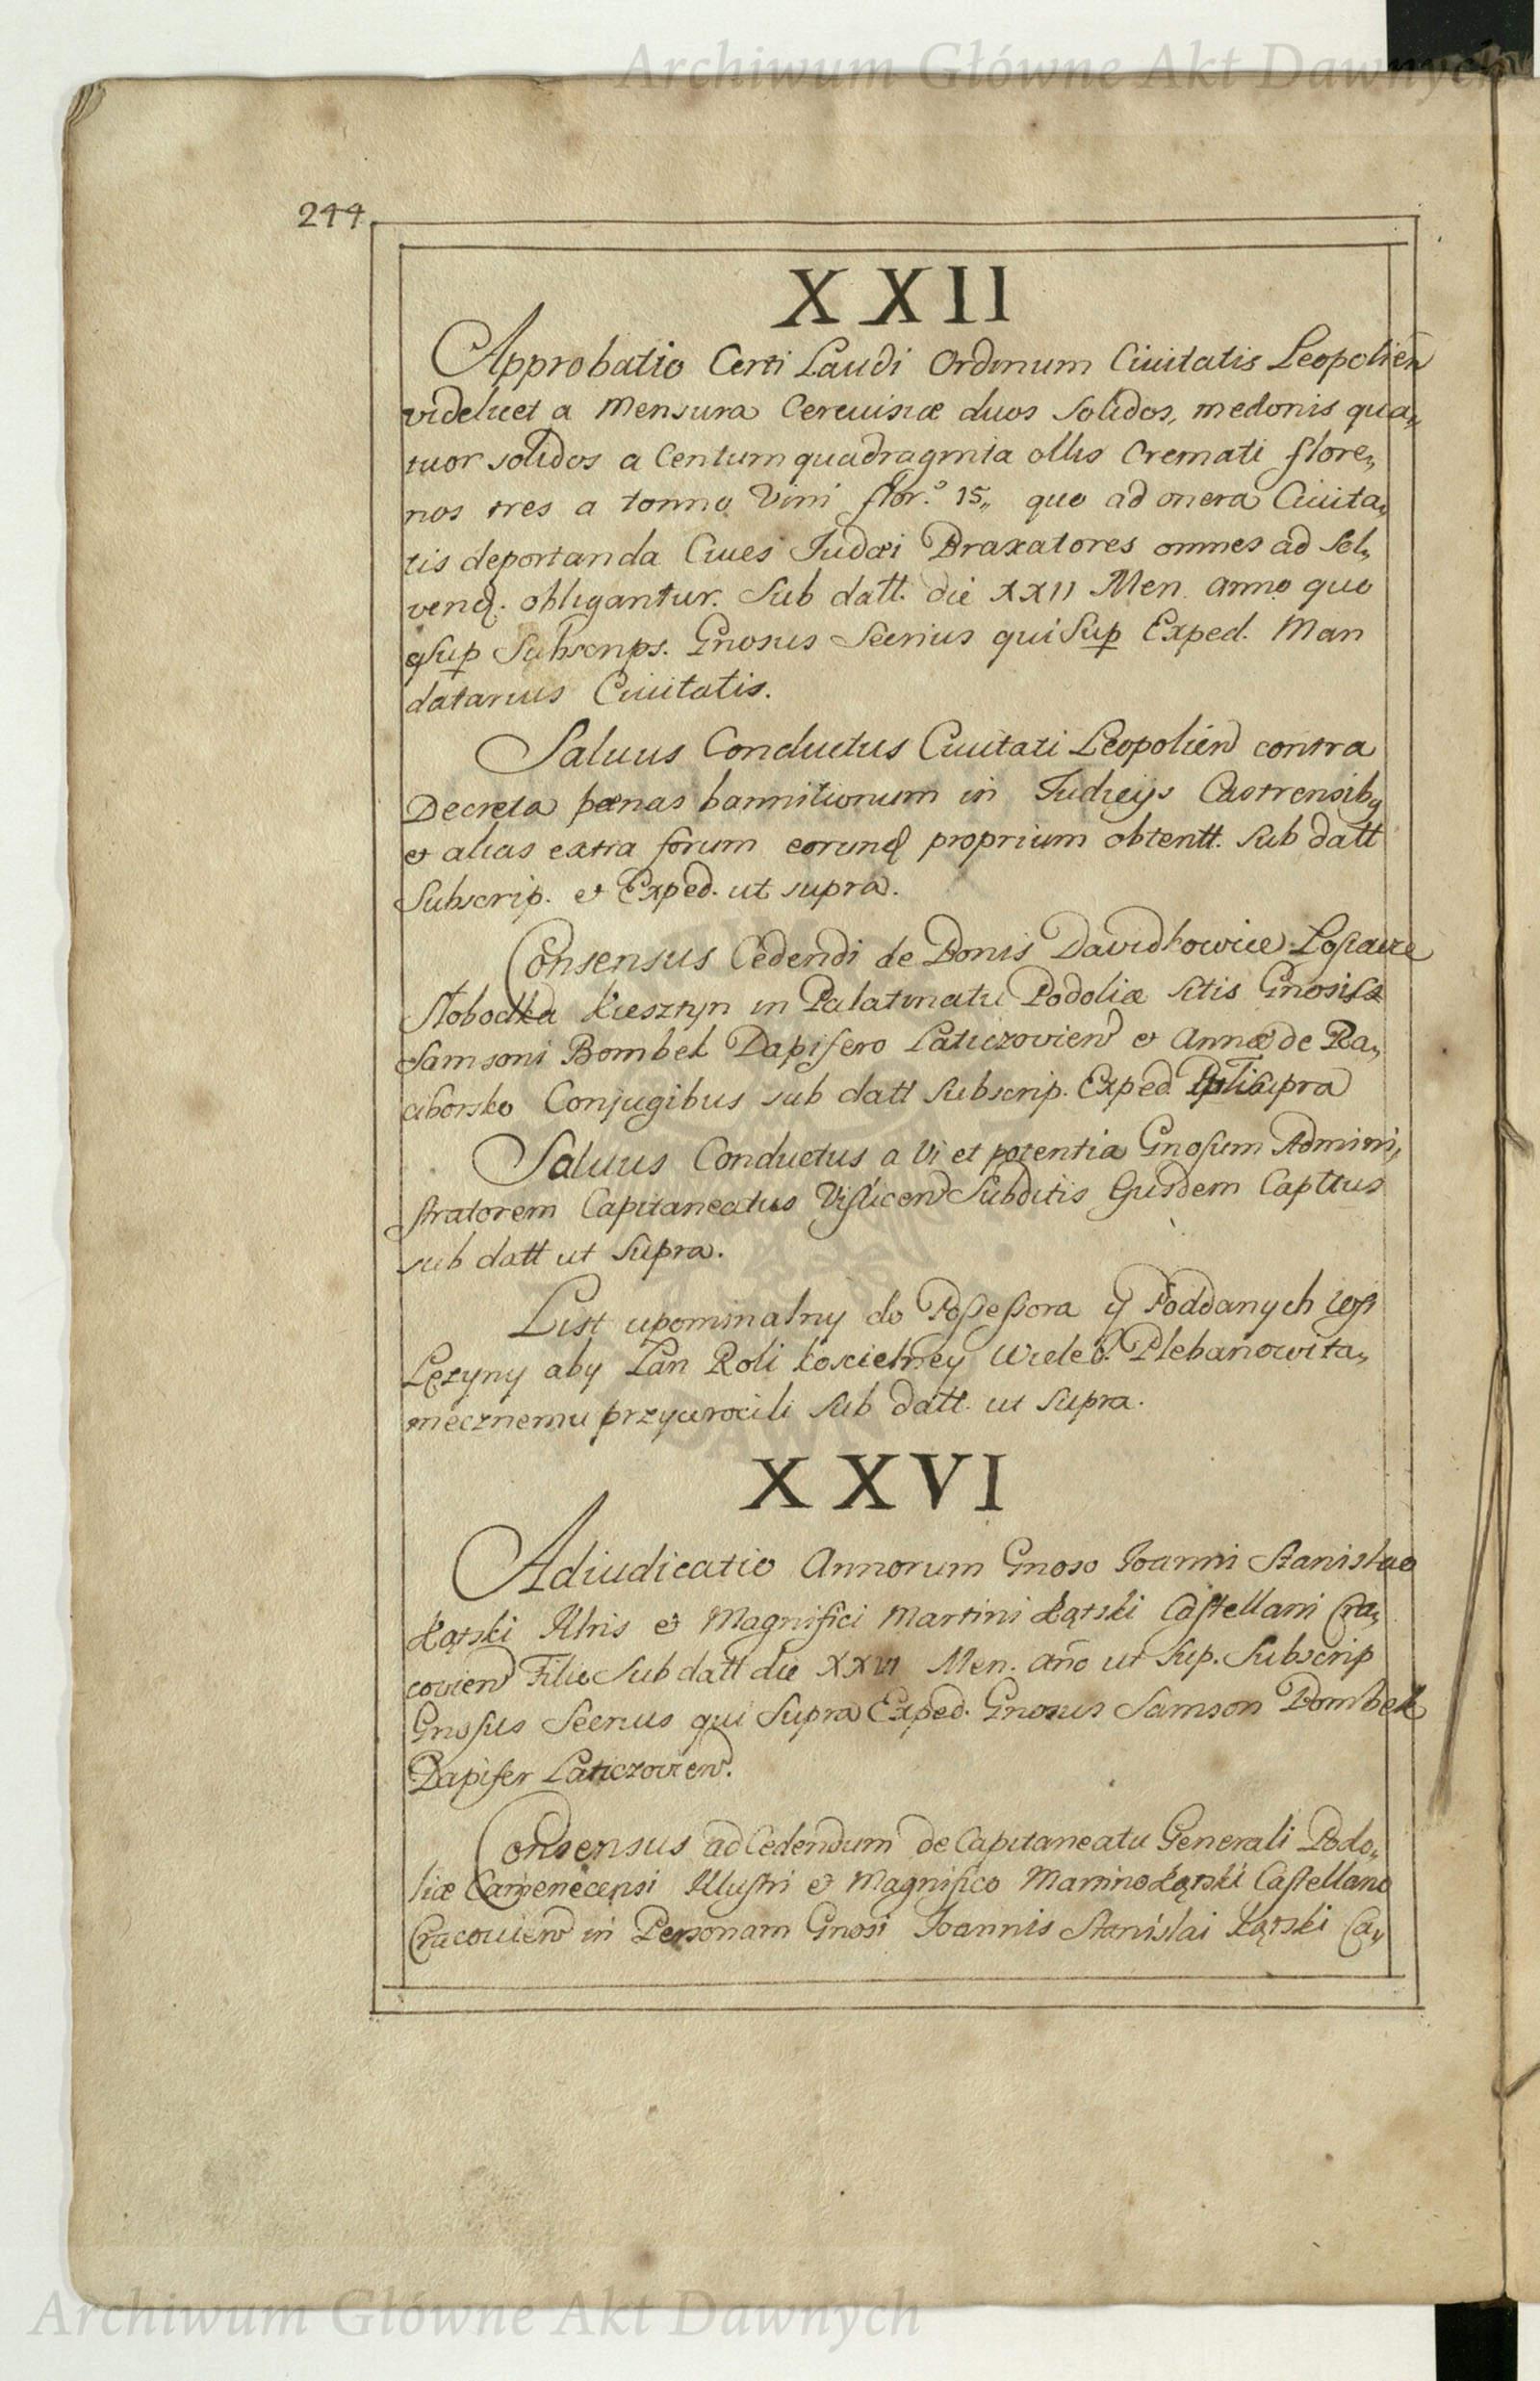 Archiwum Główne Akt Dawnych
244
XXII
Approbatio Certi Laudi Ordinum Ciuitatis Leopolien
videlicet a Mensura Cereuisiæ duos Solidos, medonis qua„
tuor solidos a Centum quadraginta ollis Cremati flore„
nos tres a tonno Vini flor.º 15„ quo ad onera Ciuita„
tis deportanda Ciues Judæi Braxatores omnes ad Sol„
vend. obligantur. Sub datt. die XXII Men. anno quo
Sup Subscrips. Gnosus Secrius qui Sup Exped. Man
datarius Ciuitatis.
Saluus Conductus Ciuitati Leopolien contra
Decreta pænas bannitionum in Judicijs Castrensibq
et alias extra forum eorund proprium obtentt. Sub datt
Subscrip. et Exped. ut supra.
Consensus Cedendi de Bonis Davidkowice
Słobodka Kiesztyn in Palatinatu Podoliæ Sitis Gnosis
Samsoni Bombek Dapifero Laticzovien et Annæ de Ra„
ciborsko Conjugibus sub datt Subscrip. Exped. supra
Saluus Conductus a Vi et potentia Gnosum Admini„
stratorem Capitaneatus Vislicen Subditis Ejusdem Capttus
sub datt ut Supra.
List upominalny do Possessora y Poddanych wsi
Lęzyny aby Łan Roli koscielney Wieleb. Plebanowi ta„
mecznemu przywrocili Sub datt. ut Supra.
XXVI
Adiudicatio Annorum Gnoso Joanni Stanislao
Kątski Illris et Magnifici Martini Kątski Castellani Cra„
covien Filio Sub datt die XXVI Men. año ut Sup. Subscrip
Gnosus Secrius qui Supra Exped. Gnosus Samson Bombek
Dapifer Laticzovien.
Consensus ad Cedendum de Capitaneatu Generali Podo„
liæ Camenecensi Illustri et Magnifico Martino Kątski Castellano
Cracovien in Personam Gnosi Joannis Stanislai Kątski Ca„
Archiwum Główne Akt Dawnych